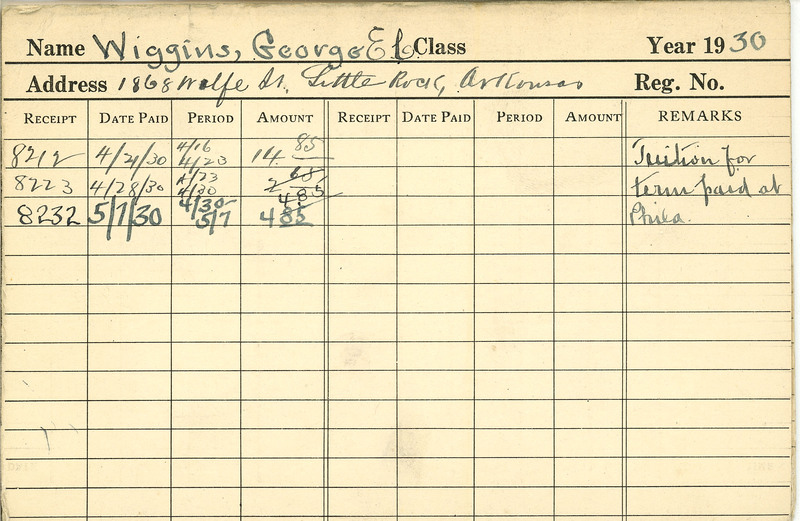 Name Wiggins, George E L Class Year 1930
Address 1868 Wolfe St. Little Rock, Arkansas Reg. No.
RECEIPT DATE PAID PERIOD AMOUNT RECEIPT DATE PAID PERIOD AMOUNT REMARKS
8212 4/21/30 4/16 4/23 14 85 Tuition for
8223 4/28/30 4/23 4/30 4 85 term paid at
8232 5/7/30 4/30- 5/7 4 85 Phila.